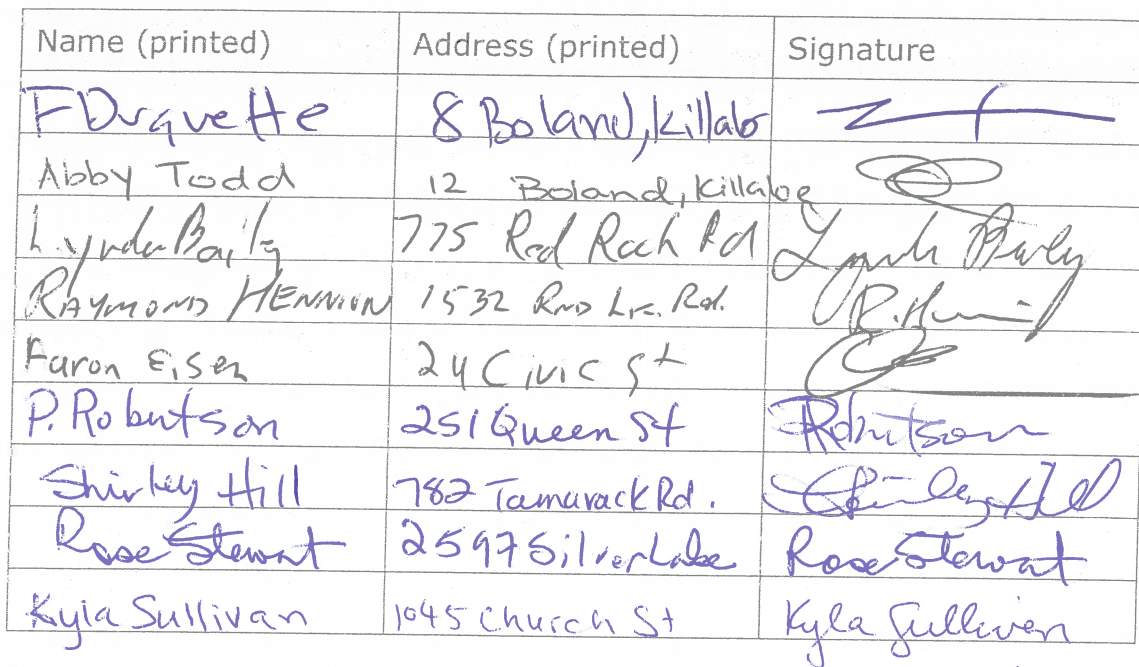 Name (printed) Address (printed) Signature
F Duquette 8 Boland, Killaloe
Abby Todd 12 Boland, Killaloe
Lynda Baily 775 Red Rock Rd Lynda Baily
RAYMOND HENNION 1532 Rd. R. Hennion
Faron Eisen 24 Civic St
P. Robertson 251 Queen St Robertson
Shirley Hill 782 Tamarack Rd. Shirley Hill
Rose Stewart 2597 Silver Lake Rose Stewart
Kyla Sullivan 1045 Church St Kyla Sullivan